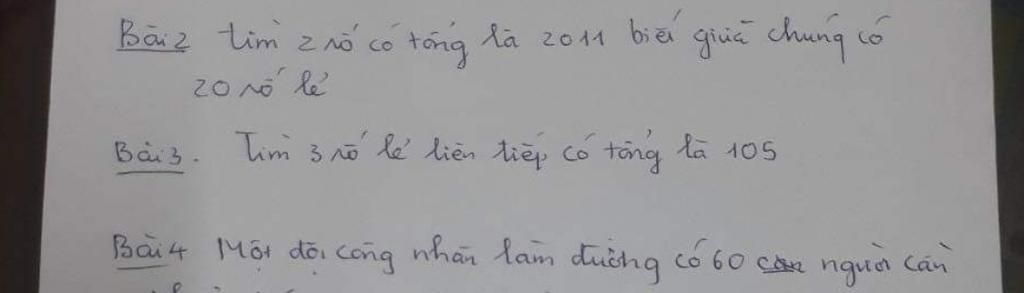 Bài 2 Tìm 2 số có tổng là 2011 biết giữa chúng có
20 số lẻ
Bài 3. Tìm 3 số lẻ liên tiếp có tổng là 105
Bài 4 Một đội công nhân làm đường có 60 người cần